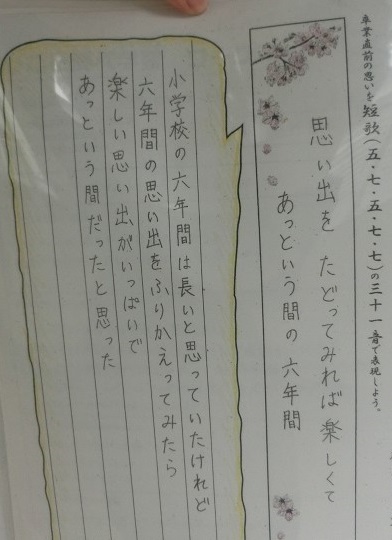 卒業直前の思いを短歌(五・七・五・七・七)の三十一音で表現しよう。
思い出を たどってみれば楽しくて
あっという間の 六年間
小学校の六年間は長いと思っていたけれど
六年間の思い出をふりかえってみたら
楽しい思い出がいっぱいで
あっという間だったと思った